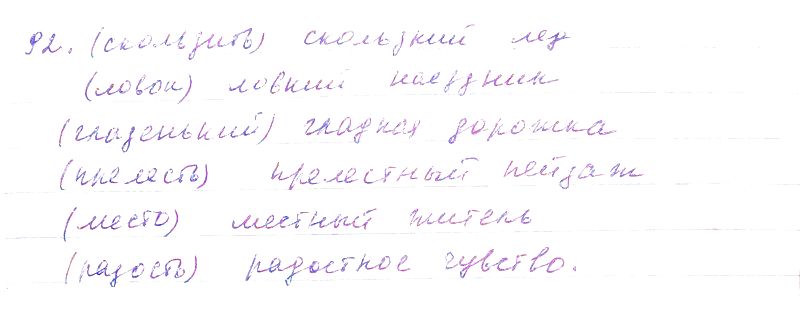 92. (скользить) скользкий лед
(ловок) ловкий наездник
(гладенький) гладкая дорожка
(прелесть) прелестный пейзаж
(место) местный житель
(радость) радостное чувство.